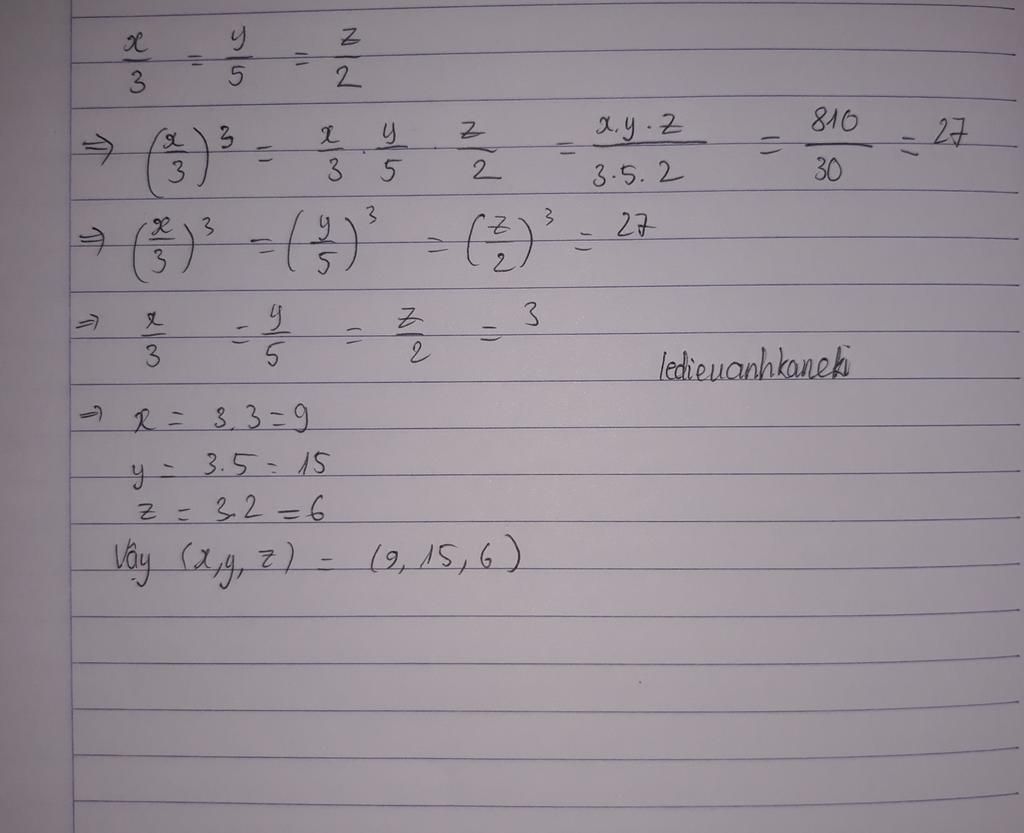 x/3 = y/5 = z/2
⇒ (x/3)³ = x/3 . y/5 . z/2 = x.y.z/3.5.2 = 810/30 = 27
⇒ (x/3)³ = (y/5)³ = (z/2)³ = 27
⇒ x/3 = y/5 = z/2 = 3
ledieuanhkaneki
⇒ x = 3.3 = 9
y = 3.5 = 15
z = 3.2 = 6
Vậy (x,y,z) = (9,15,6)